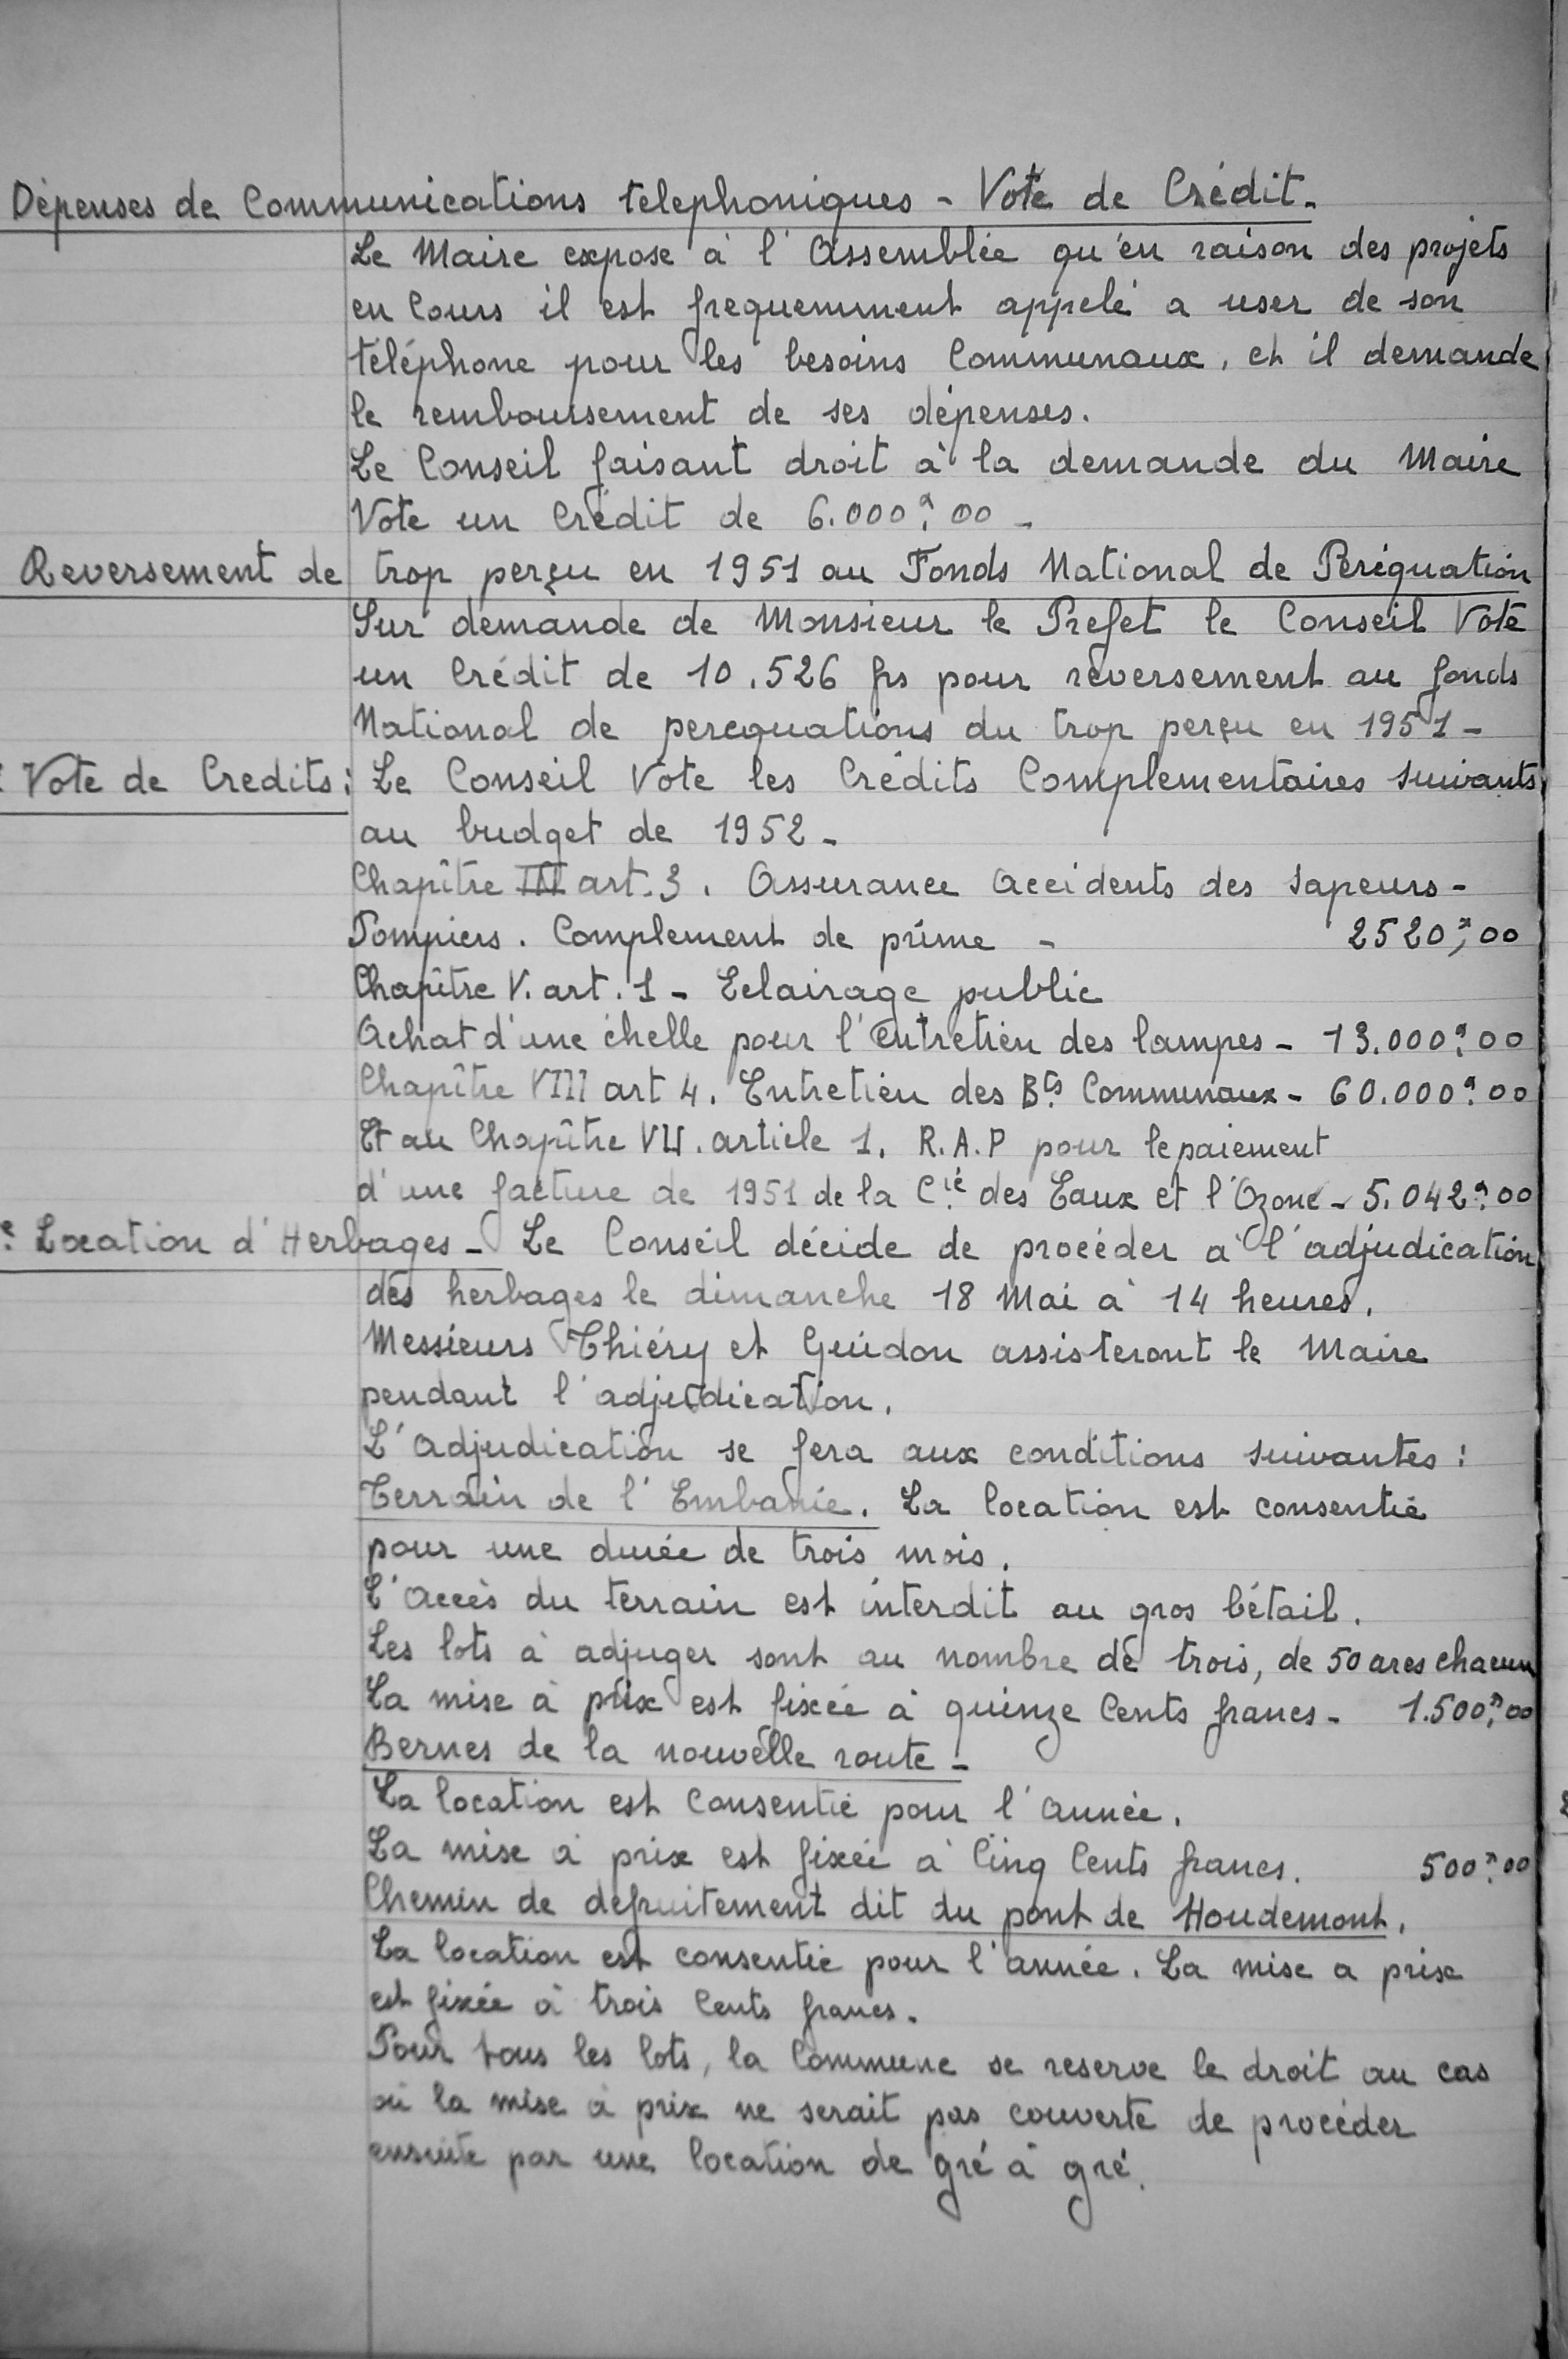 Dépenses de Communications telephoniques - Vote de Crédit.
Le Maire expose à l'Assemblée qu'en raison des projets
en Cours il est frequemment appelé a user de son
téléphone pour les besoins Communaux, et il demande
le remboursement de ses dépenses.
Le Conseil faisant droit à la demande du Maire
Vote un Crédit de 6.000,00 -
Reversement de trop perçu en 1951 au Fonds National de Péréquation
Sur demande de Monsieur le Prefet le Conseil Vote
un Crédit de 10.526 frs pour reversement au fonds
National de perequations du trop perçu en 1951 -
Vote de Credits: Le Conseil Vote les Crédits Complementaires suivants
au budget de 1952 -
Chapître III art. 3. Assurance Accidents des Sapeurs-
Pompiers. Complement de prime - 2520,00
Chapître V. art. 1 - Eclairage public
Achat d'une échelle pour l'entretien des lampes - 13.000,00
Chapître VIII art 4. Entretien des Bts Communaux - 60.000,00
Et au Chapître VII. article 1. R.A.P pour le paiement
d'une facture de 1951 de la Cie des Eaux et l'Ozone - 5.042,00
Location d'Herbages - Le Conseil décide de procéder a l'adjudication
des herbages le dimanche 18 Mai à 14 heures.
Messieurs Thiéry et Guidon assisteront le Maire
pendant l'adjudication.
L'Adjudication se fera aux conditions suivantes :
Terrain de l'Embanie. La location est consentie
pour une durée de trois mois.
L'Accès du terrain est interdit au gros bétail.
Les lots à adjuger sont au nombre de trois, de 50 ares chacun
La mise à prix est fixée à quinze Cents francs - 1.500,00
Bernes de la nouvelle route -
La location est Consentie pour l'année.
La mise à prix est fixée à Cinq Cents francs. 500,00
Chemin de defruitement dit du pont de Houdemont.
La location est consentie pour l'année. La mise a prix
est fixée à trois Cents francs.
Pour tous les lots, la Commune se reserve le droit au cas
où la mise à prix ne serait pas couverte de procéder
ensuite par une location de gré à gré.